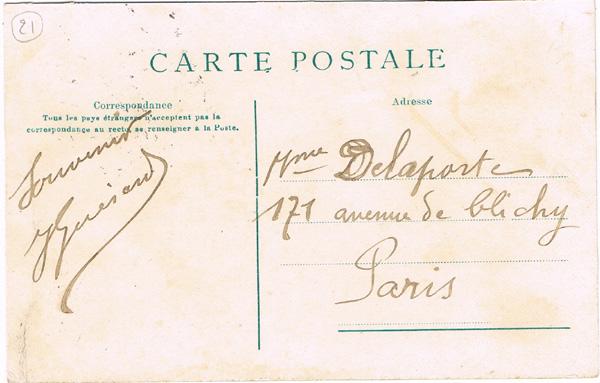 21
CARTE POSTALE
Correspondance
Tous les pays étrangers n'acceptent pas la
correspondance au recto, se renseigner à la Poste.
Souvenir
Adresse
Mme Delaporte
171 avenue de Clichy
Paris